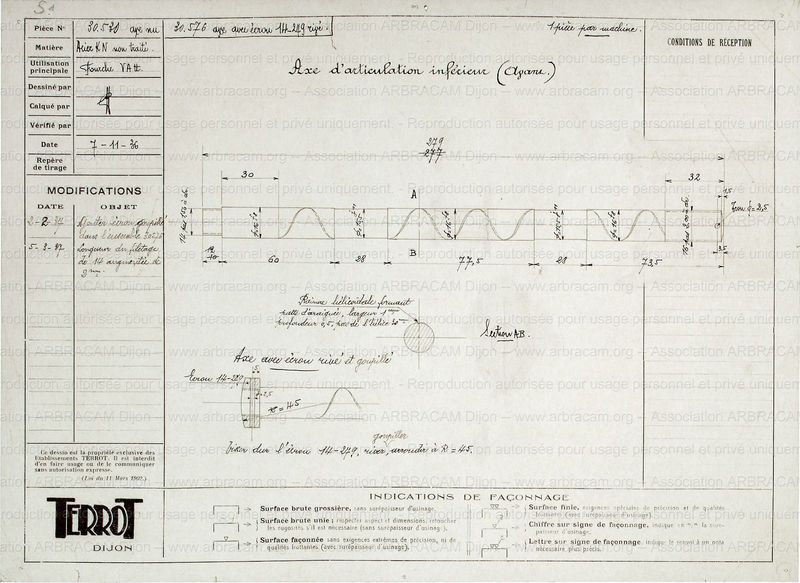 Pièce N° 30.530 axe nu 30.576 axe avec écrou 14-279 rivé. 1 pièce par machine.
Matière Acier KN non traité.
Utilisation principale Fourche VAtt
Dessiné par
Calqué par
Vérifié par
Date 7-11-36
Repère de tirage
CONDITIONS DE RÉCEPTION
Axe d'articulation inférieur (Avant.)
MODIFICATIONS
DATE OBJET
2-2-37
5-3-37 Longueur du filetage
de 14 augmentée de
2mm.
279
277
30
32
A
B
60
28
77,5
28
73,5
3,5
Rainure hélicoïdale formant
patte d'araignée, largeur 1mm
profondeur 0,5, pas de l'hélice 20mm
Section AB.
Axe avec écrou rivé et goupillé
Ecrou 14-279
R = 45
goupiller
Visser dur l'écrou 14-279, river, arrondir à R = 45.
Ce dessin est la propriété exclusive des
Etablissements TERROT. Il est interdit
d'en faire usage ou de le communiquer
sans autorisation expresse.
(Loi du 11 Mars 1902.)
TERROT
DIJON
INDICATIONS DE FAÇONNAGE
Surface brute grossière, sans surépaisseur d'usinage.
Surface brute unie; respecter aspect et dimensions, retoucher
les rugosités s'il est nécessaire (sans surépaisseur d'usinage).
Surface façonnée sans exigences extrêmes de précision, ni de
qualités frottantes (avec surépaisseur d'usinage).
Surface finie, exigences spéciales de précision et de qualités
frottantes (avec surépaisseur d'usinage).
Chiffre sur signe de façonnage, indique en m/m la surépaisseur
d'usinage.
Lettre sur signe de façonnage, indique le renvoi à une note
nécessaire plus précis.
www.arbracam.org - Association ARBRACAM Dijon - www.arbracam.org
Reproduction autorisée pour usage personnel et privé uniquement.